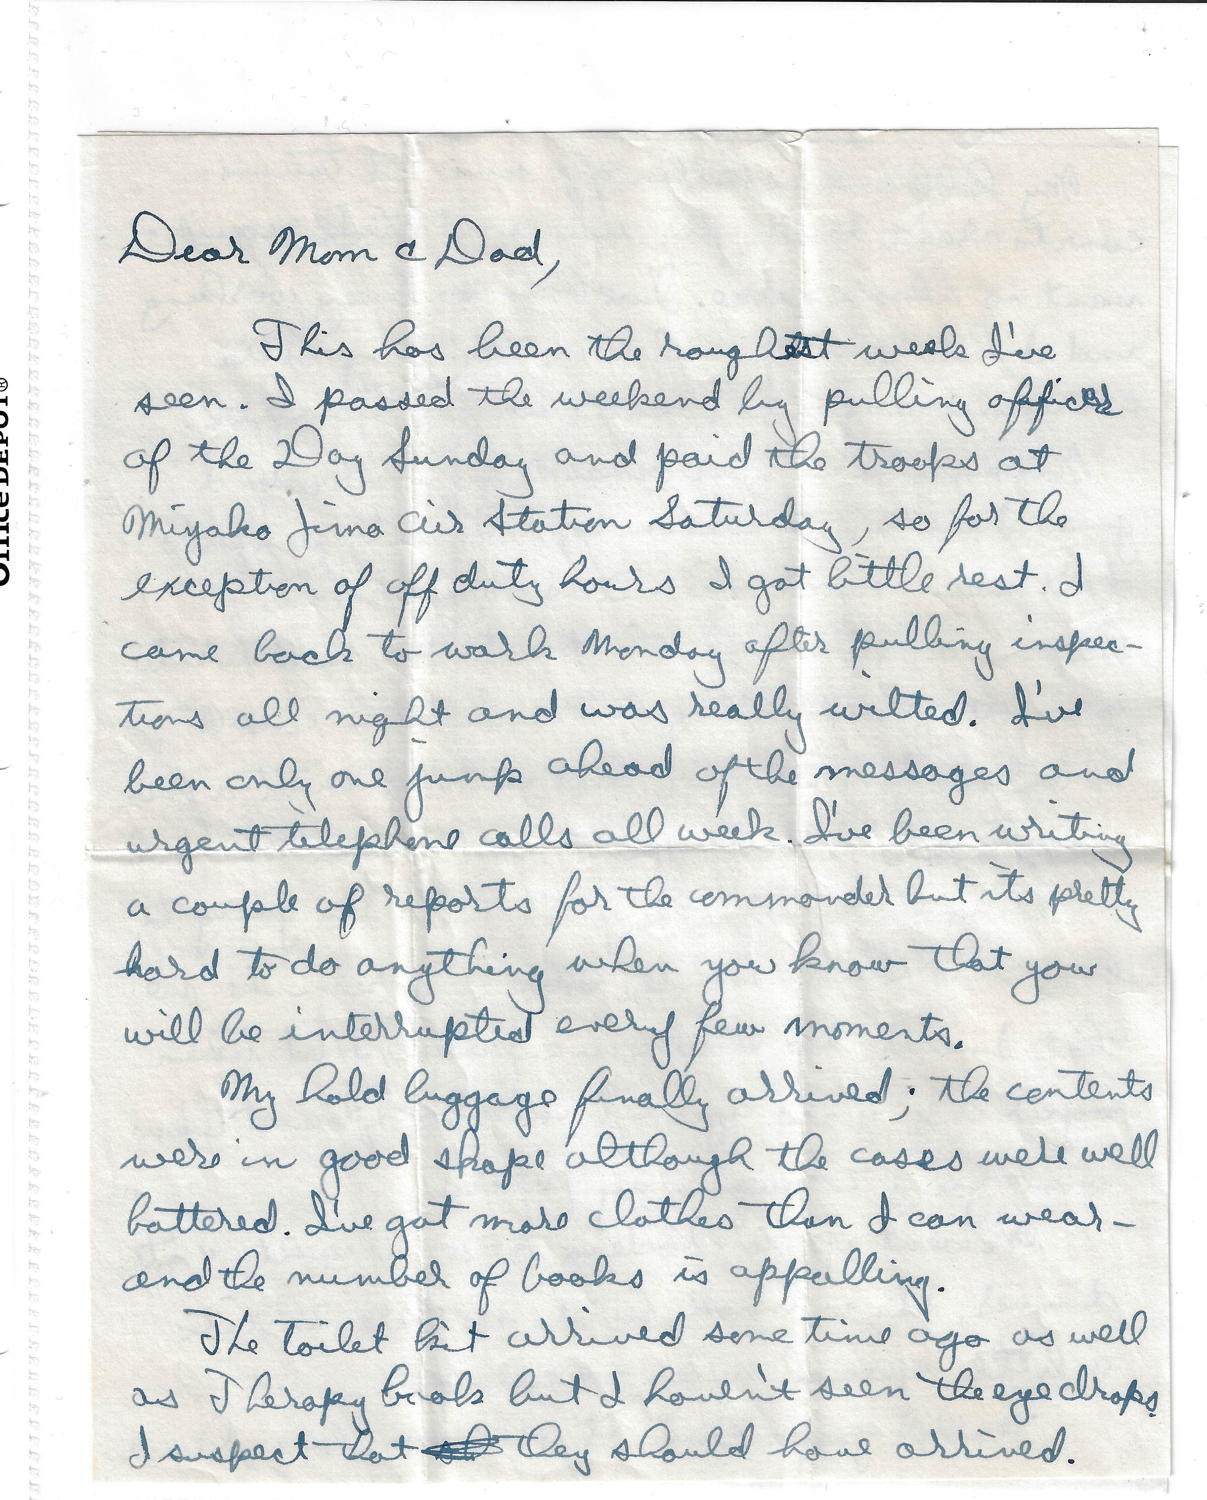 Office DEPOT®
Dear Mom & Dad,
This has been the roughest week I've
seen. I passed the weekend by pulling officer
of the Day Sunday and paid the troops at
Miyako Jima Air Station Saturday, so for the
exception of off duty hours I got little rest. I
came back to work Monday after pulling inspec-
tions all night and was really wilted. I've
been only one jump ahead of the messages and
urgent telephone calls all week. I've been writing
a couple of reports for the commander but its pretty
hard to do anything when you know that you
will be interrupted every few moments.
My hold luggage finally arrived; the contents
were in good shape although the cases were well
battered. I've got more clothes than I can wear-
and the number of books is appalling.
The toilet kit arrived some time ago as well
as Therapy book but I haven't seen the eye drops.
I suspect that they should have arrived.